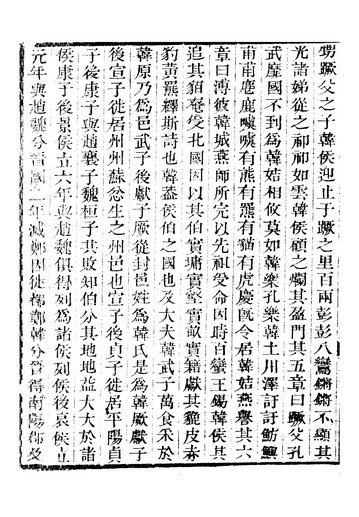 甥蹶父之子韓侯迎止于蹶之里百兩彭彭八鸞鏘鏘不顯其
光諸娣從之祁祁如雲韓侯顧之爛其盈門其五章曰蹶父孔
武靡國不到爲韓姞相攸莫如韓樂孔樂韓土川澤訏訏魴鱮
甫甫麀鹿噳噳有熊有羆有猫有虎慶旣令居韓姞燕譽其六
章曰溥彼韓城燕師所完以先祖受命因時百蠻王錫韓侯其
追其貊奄受北國因以其伯實墉實壑實畝實籍獻其貔皮赤
豹黃羆繹斯詩也韓蓋侯伯之國也及大夫韓武子萬食采於
韓原乃爲邑武子後獻子厥從封邑姓爲韓氏是爲韓厥獻子
後宣子徙居州州蘇忿生之州邑也宣子後貞子徙居平陽貞
子後康子與趙襄子魏桓子共敗知伯分其地地益大大於諸
侯康子後景侯立六年與趙魏俱得列爲諸侯列侯後哀侯立
元年與趙魏分晉國二年滅鄭因徙都鄭韓分晉得南陽郡及